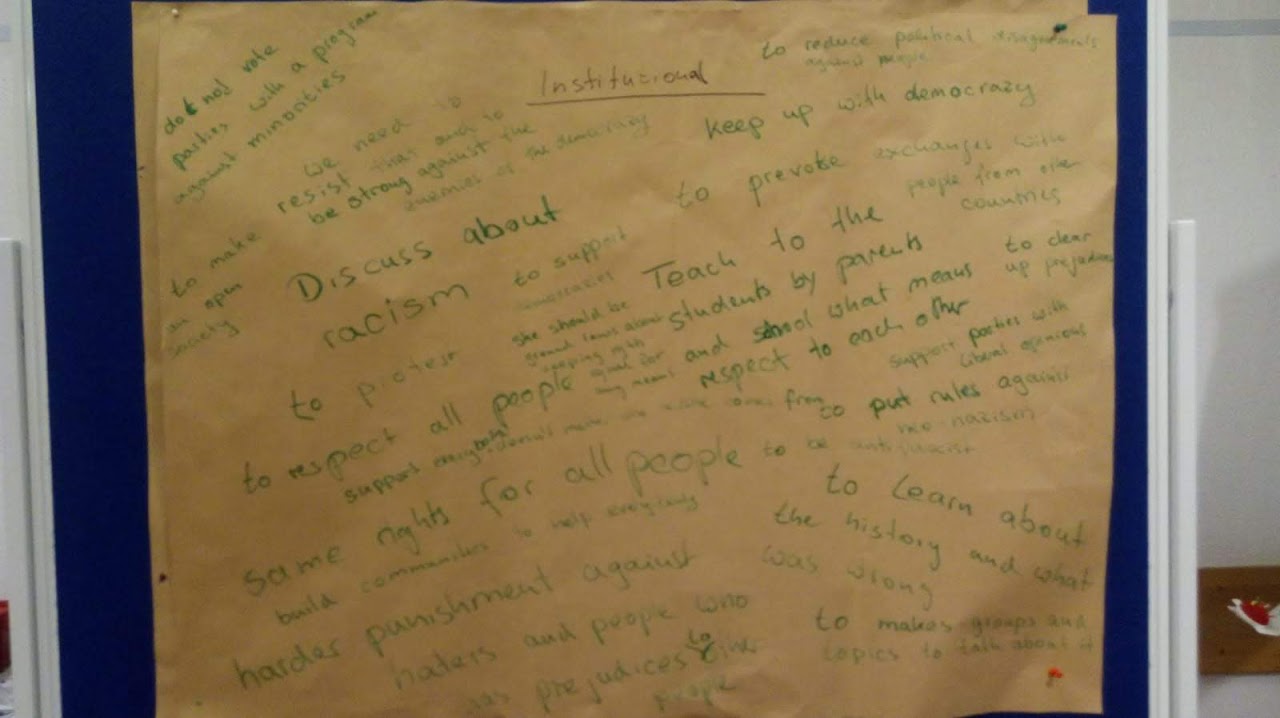 Institucional
do not vote
parties with a program
against minorities
to reduce political disagreements
against people
we need to
resist that and to
be strong against the
enemies of the democrazy
keep up with democrazy
to prevoke exchanges with
people from other
countries
to make
an open
society
Discuss about
racism
to support
democrazies
Teach to the
students by parents
and school what means
respect to each other
to clear
up prejudices
to protest
she should be
laws about
support parties with
liberal openions
to respect all people
support everybody
from
to put rules against
neo-nazism
same rights for all people
to be antifascist
build communities to help everybody
to Learn about
the history and what
was wrong
harder punishment against
haters and people who
has prejudices to
people
to makes groups and
topics to talk about it